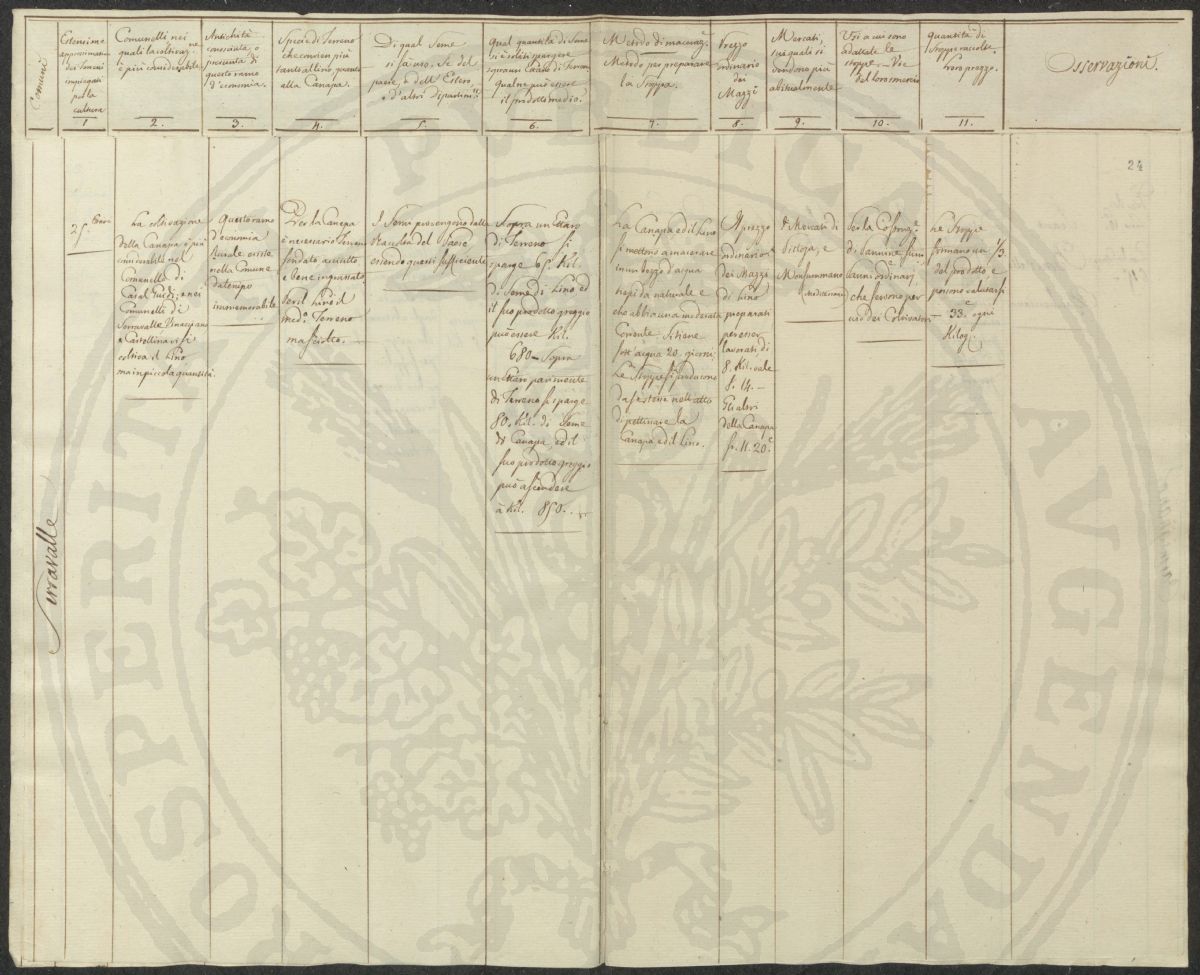 Comuni
Estensione
approssimativa
dei Terreni
impiegati
per la
cultura
1
Comunelli nei
quali la coltivaz.ne
è più considerabile
2.
Antichità
conosciuta, o
presunta di
questo ramo
d'economia.
3.
Specie di Terreno
che convien più
tanto al Lino, quanto
alla Canapa.
4.
Di qual Seme
si fà uso. Se del
paese, o dell'Estero
o d'altri Dipartim.ti
5.
Qual quantità di Seme
si è soliti spargere
sopra un Ettaro di Terreno
qual ne può essere
il prodotto medio.
6.
Metodo di maceraz.
Metodo per preparare
la Stoppa.
7.
Prezzo
ordinario
dei
Mazzi
8.
Mercati,
sui quali si
vendono più
abitualmente
9.
Usi a cui sono
adattate le
stoppe - Vie
del loro smercio
10.
Quantità di
Stoppe raccolte.
Loro prezzo.
11.
Osservazioni.
24
Serravalle
25 Ettari
La coltivazione
della Canapa è più
considerabile nel
Comunello di
Casal Guidi; e nei
Comunelli di
Serravalle Vinacciano
e Castellina vi si
coltiva il Lino
ma in piccola quantità.
Questo ramo
d'economia
Rurale esiste
nella Comune
da tempo
immemorabile
Per la Canapa
è necessario Terreno
fondato asciutto
e bene ingrassato
Per il Lino il
med.o Terreno
ma sciolto.
I Semi provengono dalla
Raccolta del Paese
essendo questi sufficiente
Sopra un Ettaro
di Terreno si
sparge 65. Kil.
di Seme di Lino ed
il suo prodotto greggio
può essere Kil.
680 - Sopra
un Ettaro parimente
di Terreno si sparge
80. Kil. di Seme
di Canapa, ed il
suo prodotto greggio
può ascendere
a Kil. 850.
La Canapa ed il Lino
si mettono a macerare
in un bozzo d'acqua
tepida naturale e
che abbia una moderata
Corrente. Si tiene
sott'acqua 20. giorni
Le Stoppe si producono
da se stesse nell'atto
di pettinare la
Canapa ed il Lino.
Il prezzo
ordinario
dei Mazzi
di Lino
preparati
per esser
lavorati di
8. Kil. vale
f. 14. -
Gli altri
della Canapa
fr. 11. 20.c
I Mercati di
Pistoja, e
Monsummano
Per la Cosfruz.e
di pannine
lani ordinarj
che servono per
uso dei Coltivatori
Le Stoppe
formano un 1/3.
del prodotto e
possono valutarsi
- 33.c ogni
Kilog.